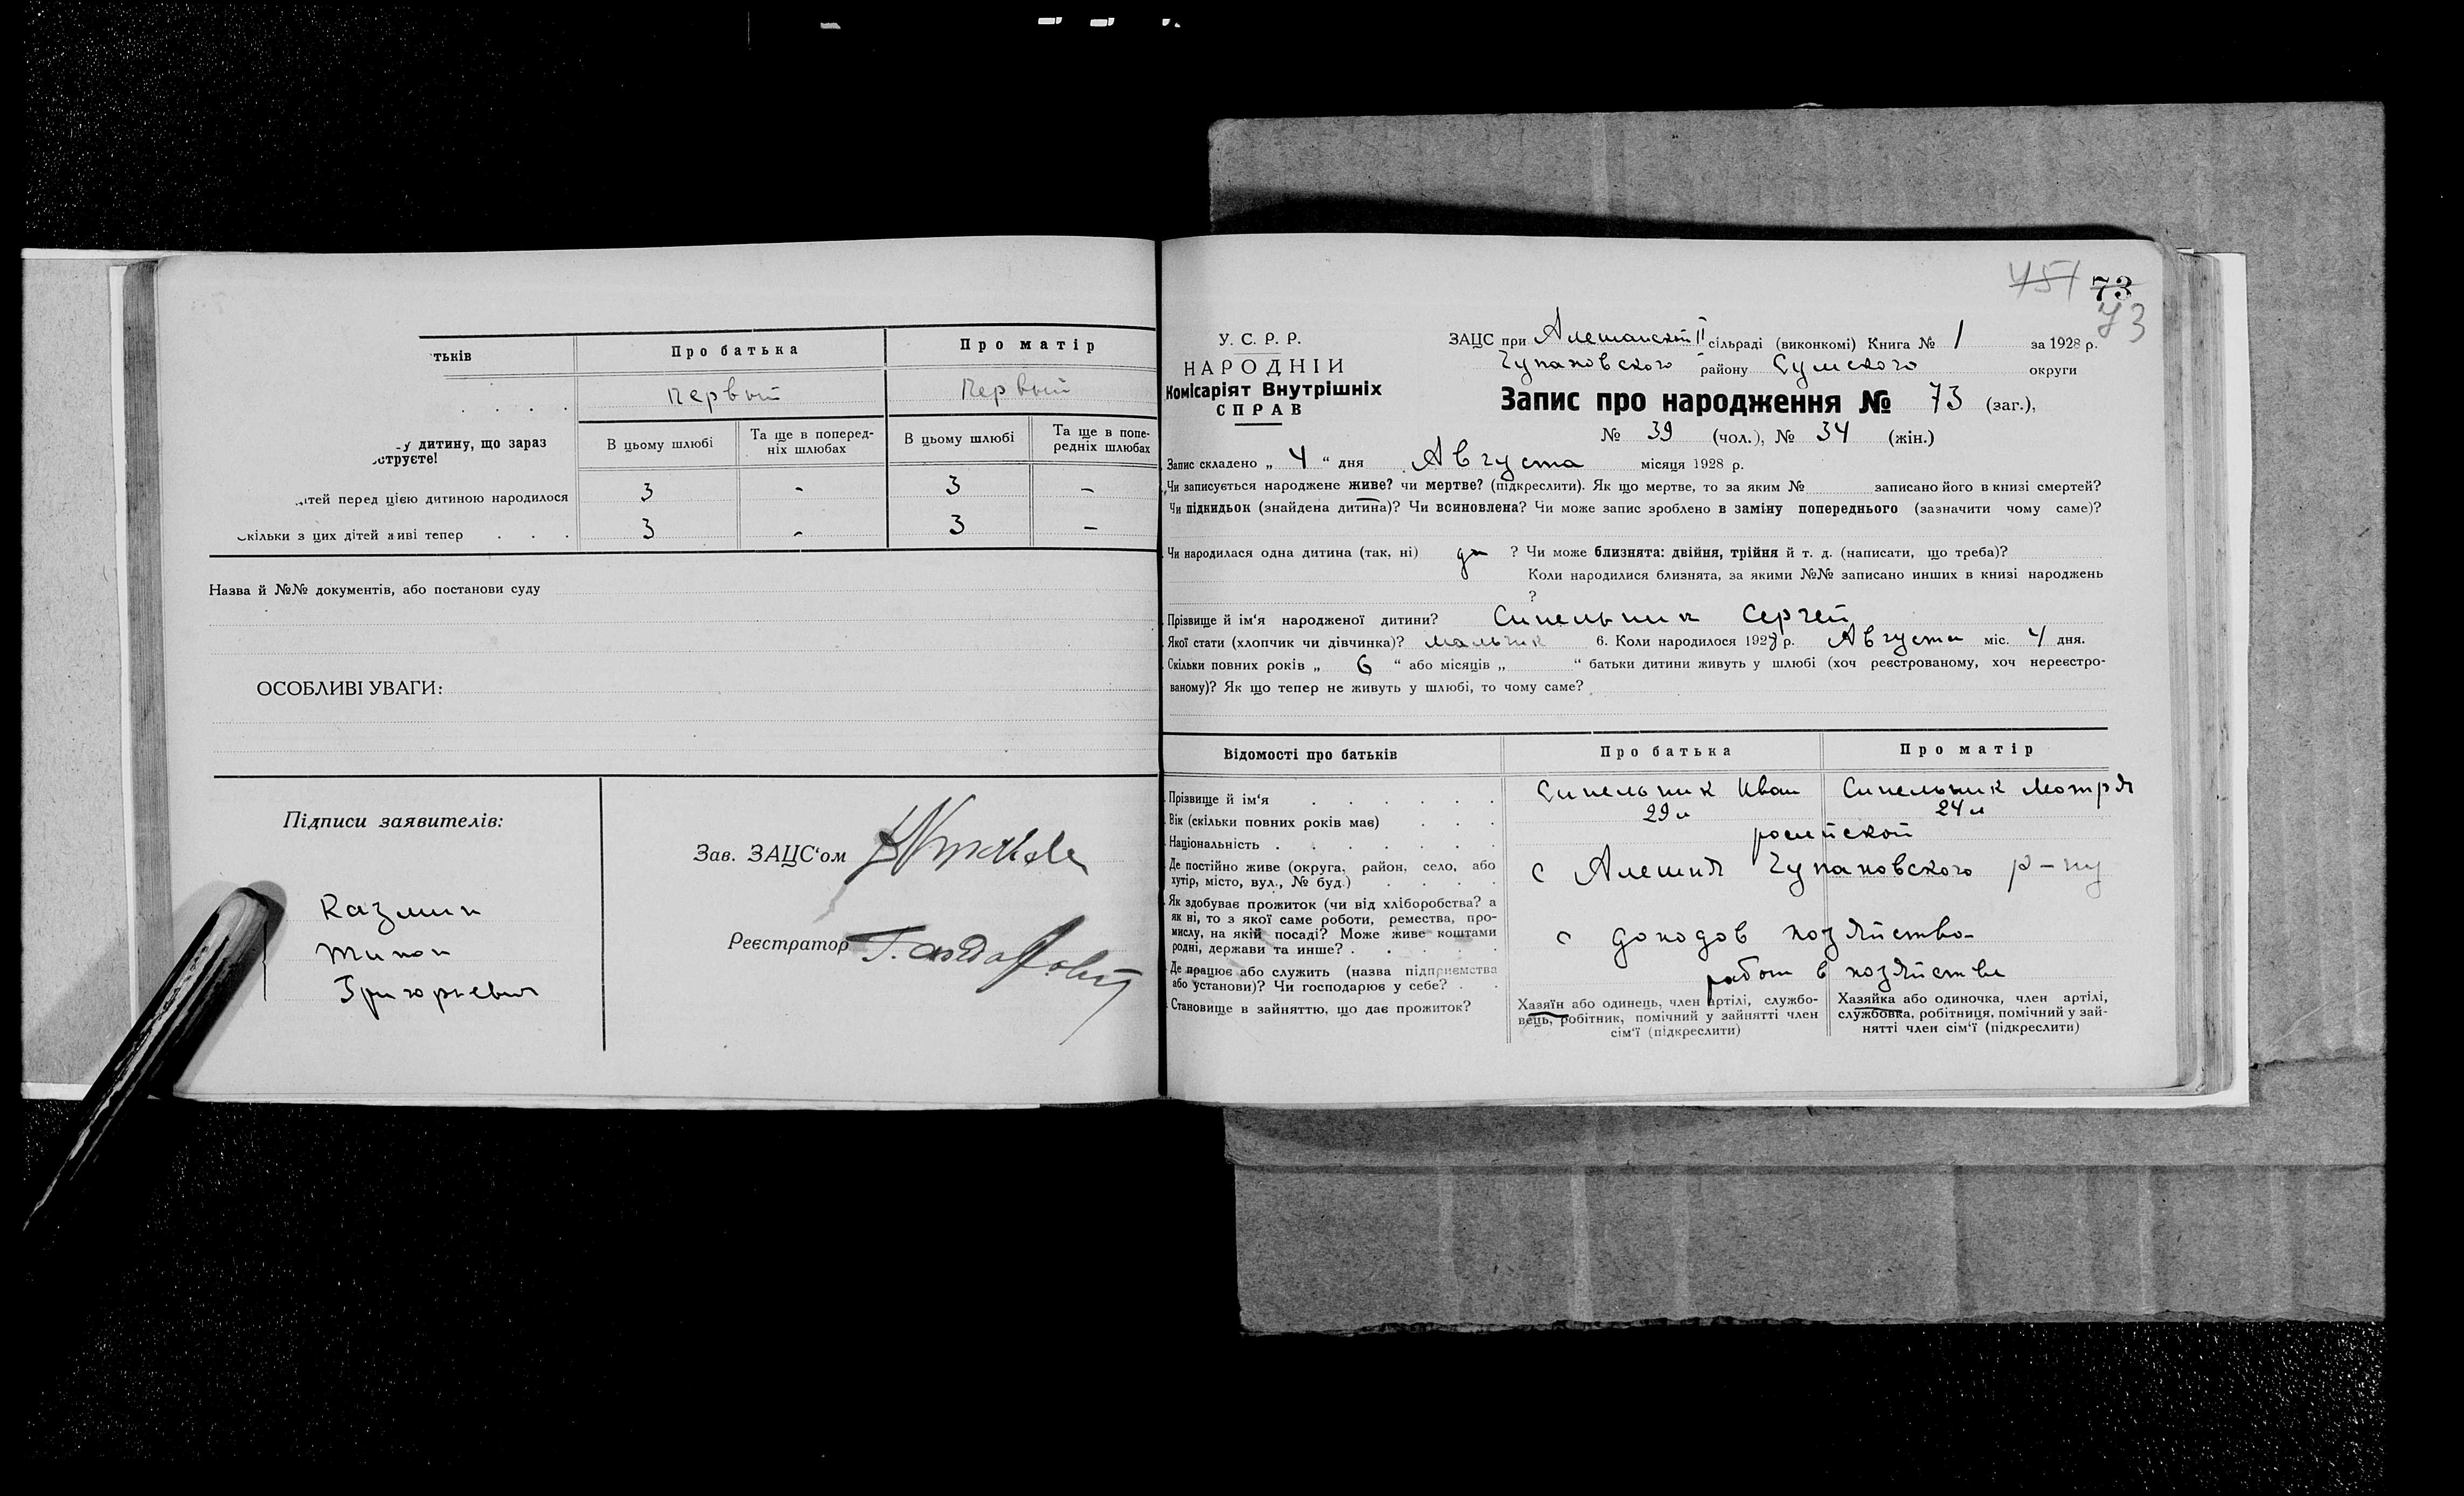 тьків
Про батька
Про матір
Первый
Первый
у дитину, що зараз
струєте!
В цьому шлюбі
Та ще в поперед-
ніх шлюбах
В цьому шлюбі
Та ще в попе-
редніх шлюбах
ітей перед цією дитиною народилося
3
-
3
-
кільки з цих дітей живі тепер
3
-
3
-
Назва й №№ документів, або постанови суду
ОСОБЛИВІ УВАГИ:
Підписи заявителів:
Тихон
Григорьевич
Зав. ЗАЦС'ом
Реєстратор
451 73
73
У. С. Р. Р.
НАРОДНІЙ
Комісаріят Внутрішніх
СПРАВ
ЗАЦС при Алешанской II сільраді (виконкомі) Книга № 1 за 1928 р.
Чупаховского району Сумского округи
Запис про народження № 73 (заг.),
№ 39 (чол.), № 34 (жін.)
Запис складено „ 4 “ дня Августа місяця 1928 р.
Чи записується народжене живе? чи мертве? (підкреслити). Як що мертве, то за яким № записано його в книзі смертей?
Чи підкидьок (знайдена дитина)? Чи всиновлена? Чи може запис зроблено в заміну попереднього (зазначити чому саме)?
Чи народилася одна дитина (так, ні) да ? Чи може близнята: двійня, трійня й т. д. (написати, що треба)?
Коли народилися близнята, за якими №№ записано инших в книзі народжень
?
Прізвище й ім'я народженої дитини? Синельник Сергей
Якої стати (хлопчик чи дівчинка)? мальчик 6. Коли народилося 1928 р. Августа міс. 4 дня.
Скільки повних років „ 6 “ або місяців „ “ батьки дитини живуть у шлюбі (хоч реєстрованому, хоч нереєстро-
ваному)? Як що тепер не живуть у шлюбі, то чому саме?
Відомості про батьків
Про батька
Про матір
Прізвище й ім'я
Синельник Иван
Синельник Мотря
Вік (скільки повних років має)
29 л
24 л
Національність
російской
Де постійно живе (округа, район, село, або
хутір, місто, вул., № буд.)
с Алешня Чупаховского р-ну
Як здобуває прожиток (чи від хліборобства? а
як ні, то з якої саме роботи, ремества, про-
мислу, на якій посаді? Може живе коштами
родні, держави та инше?
с доходов хозяйства
Де працює або служить (назва підприємства
або установи)? Чи господарює у себе?
работ в хозяйстве
Становище в зайняттю, що дає прожиток?
Хазяїн або одинець, член артілі, службо-
вець, робітник, помічний у зайнятті член
сім'ї (підкреслити)
Хазяйка або одиночка, член артілі,
службовка, робітниця, помічний у зай-
нятті член сім'ї (підкреслити)